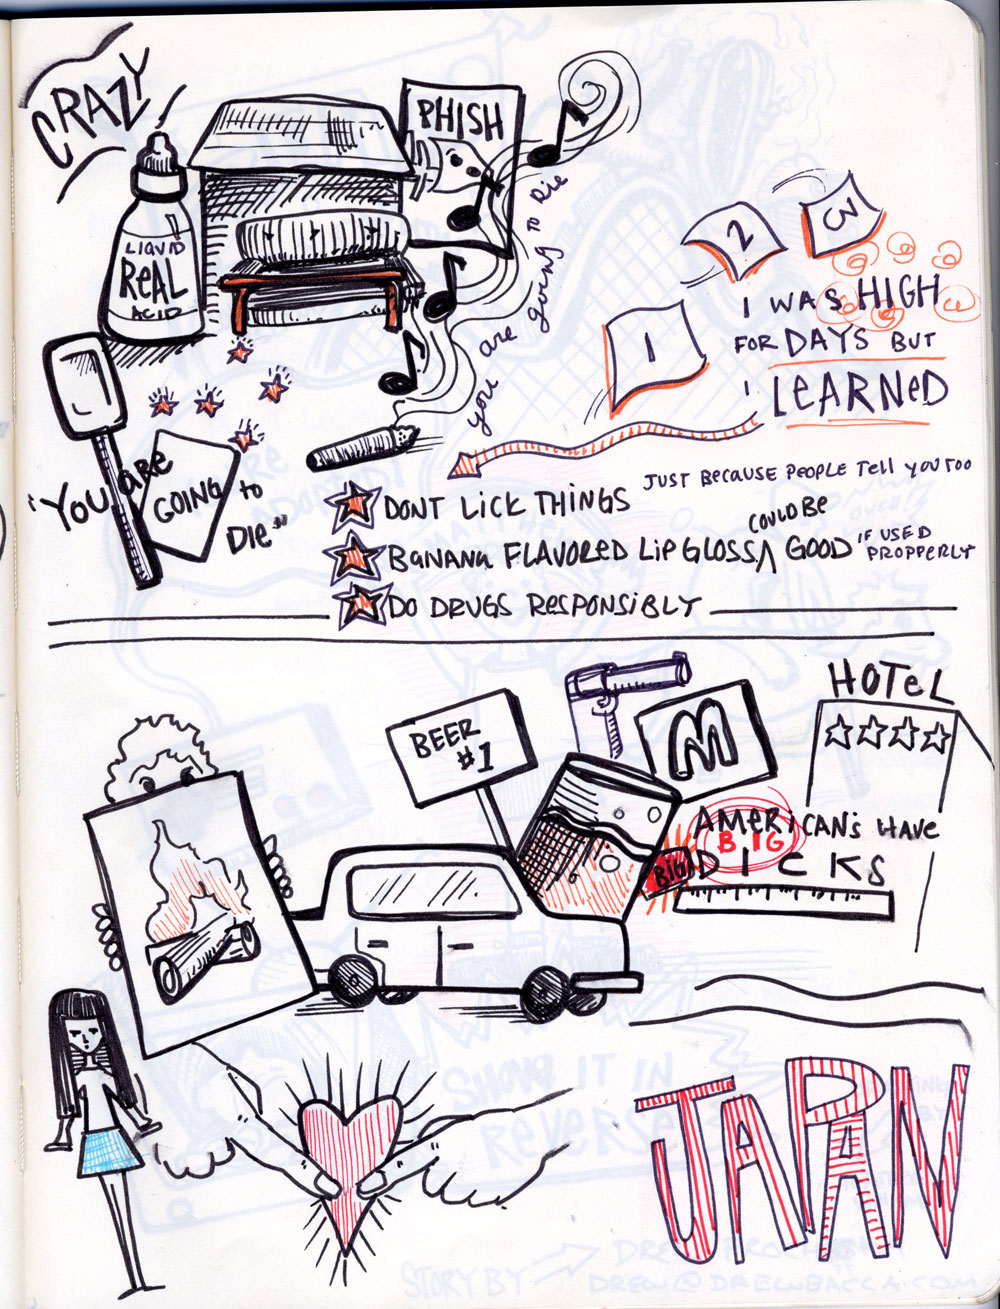 CRAZY
LIQUID
REAL
ACID
PHISH
you are going to die
1
2
3
I WAS HIGH
FOR DAYS BUT
I LEARNED
"YOU ARE
GOING to
DIE"
JUST BECAUSE PEOPLE TELL YOU TOO
DONT LICK THINGS
COULD BE
BANANA FLAVORED LIP GLOSS ^ GOOD IF USED
PROPPERLY
DO DRUGS RESPONSIBLY
HOTEL
BEER
#1
M
AMERICAN'S HAVE
BIG
BIG DICKS
JAPAN
SHOVE IT IN
REVERSE
STORY BY
DREW@DREWBACCA.COM